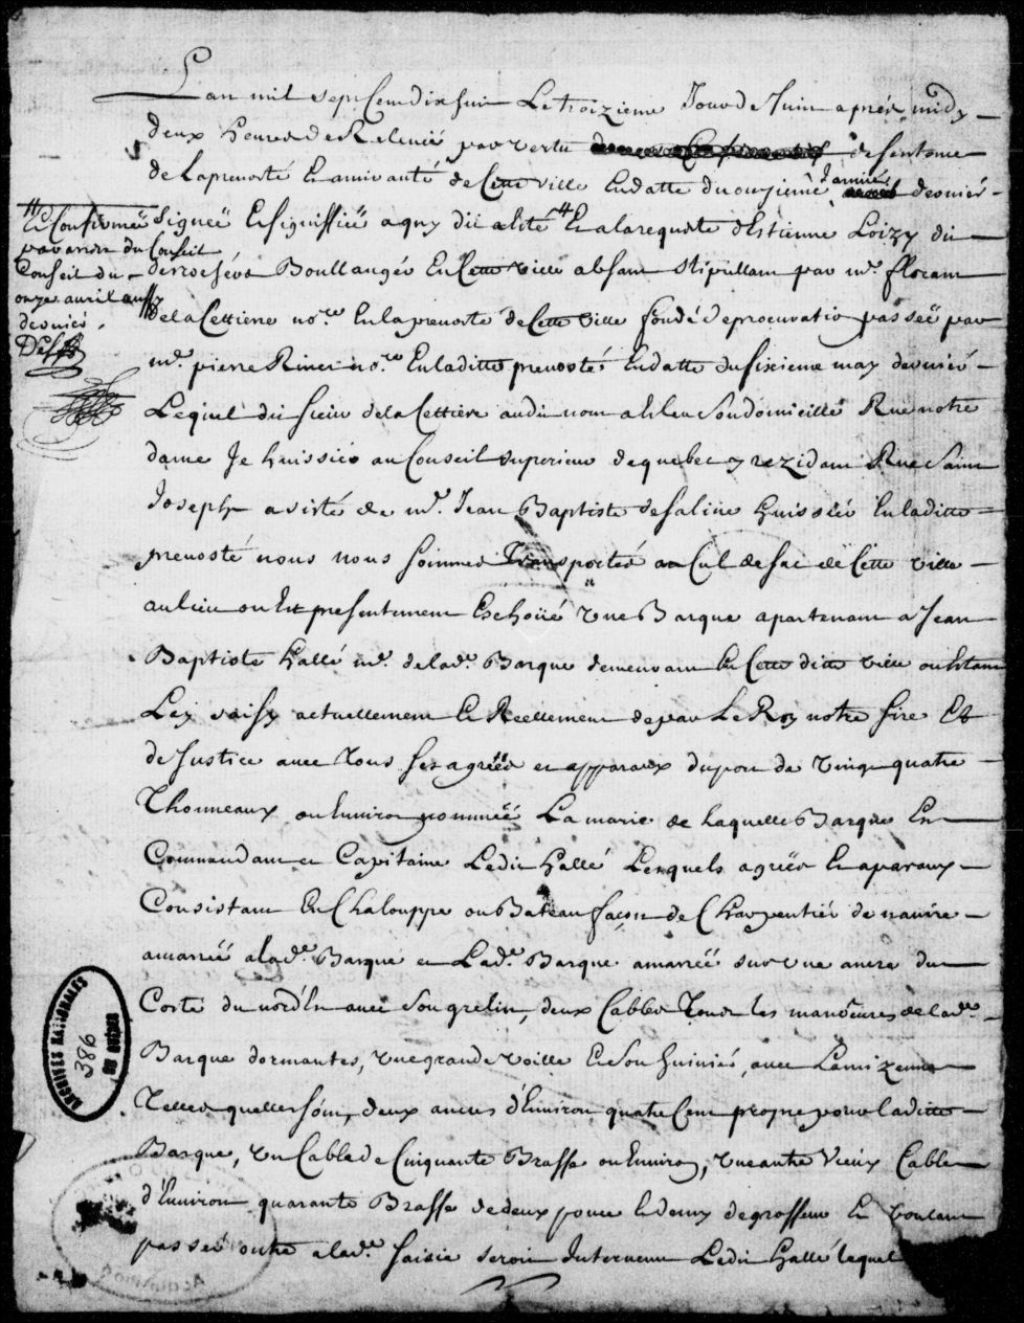 Lan mil sept Cent dix huit Le troizieme Jour de Juin apres midy
deux heures de Relevée par vertu de sentence
de la prevosté Et amirauté de Cette ville En datte du onzieme Janvier dernier
Signée Et signiffiée a qny dit esté # Et a la requeste d'Estienne Loizy dit
# Et Confirmée
par arrest du Conseil
Conseil du
onze avril aussy
dernier.
desrochers Boullangér En Cette ville absent stipullant par mr. florent
de la Cettiere nore. En la prevosté de Cette ville fondé de procuration passée par
mr. pierre Rivet nore. En laditte prevosté En datte du sixieme may dernier
Lequel dit sieur de la Cettiere audit nom a Esleu son domicille Rue notre
dame Je huissier au Conseil superieur de quebec y rezidant Rue Saint
Joseph assisté de mr. Jean Baptiste de saline huissier En laditte
prevosté nous nous sommes Transportés au Cul de sac de Cette ville
au lieu ou Est presentement Eschoüé Une Barque apartenant a Jean
Baptiste hallé me. de lade. Barque demeurant En Cette ditte ville ou Estant
Lay saisy actuellement Et Reellement de par Le Roy notre sire Et
de Justice avec Tous ses agrées et apparaux du port de Vingt quatre
Thonneaux ou Environ nommée La marie de laquelle Barque Est
Commandant et Capitaine Ledit hallé Lesquels agrées Et aparaux
Consistant En Chalouppe ou Bateau façon de Charpentier de navire
amarrée a lade. Barque et Lade. Barque amarrée sur une ancre du
Costé du nord Est avec son grelin, deux Cables Tous les manœuvres de lade.
Barque dormantes, une grande voille Et son huinier, avec La mizenne
Telles quelles sont, deux ancres d'Environ quatre Cent propre pour laditte
Barque, un Cable de Cinquante Brasse ou Environ, une autre Vieux Cable
d'Environ quarante Brasse de deux pouce Et demy de grosseur Et voulant
passer outre a lade. saisie seroit Intervenu Ledit hallé lequel
ARCHIVES NATIONALES
386
DU QUÉBEC